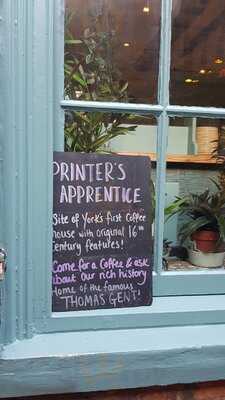 PRINTER'S
APPRENTICE
Site of York's first Coffee
house with original 16th
Century features!
Come for a Coffee & ask
about our rich history
Home of the famous
THOMAS GENT!